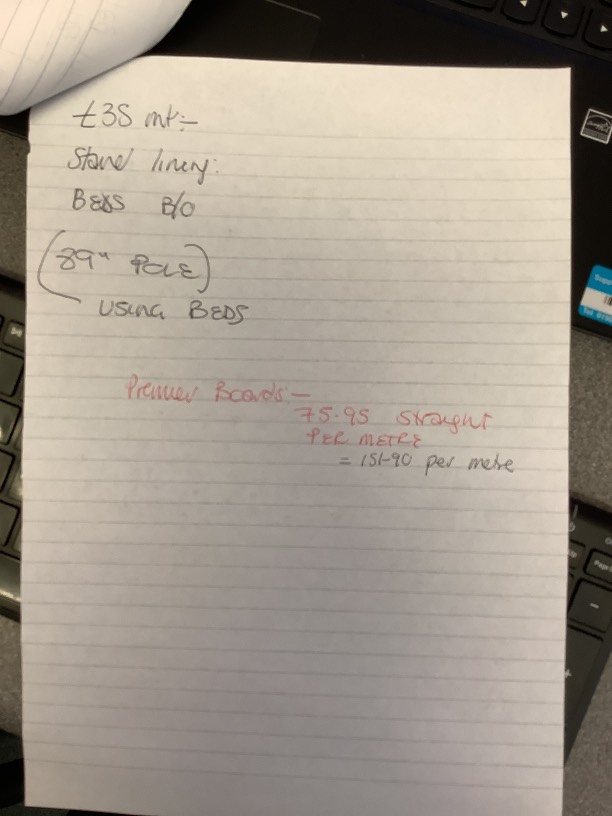 £35 mt:-
Stand linery:
BEDS B/O
(89" POLE)
USING BEDS
Premier Boards:-
75.95 straight
PER METRE
= 151-90 per metre